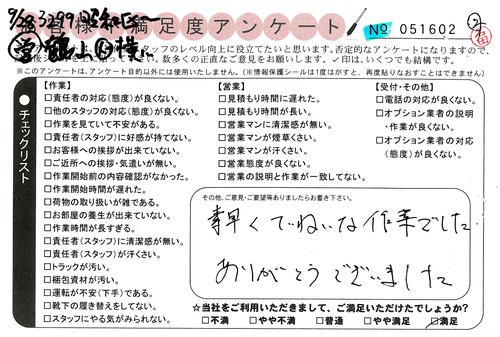 お客様満足度アンケート
No 051602
※このアンケートは、アンケート目的以外には使用いたしません。(※情報保護シールは1度はがすと、再度貼りなおすことはできません)
チェックリスト
【作業】
□責任者の対応(態度)が良くない。
□他のスタッフの対応(態度)が良くない。
□作業を見ていて不安がある。
□責任者(スタッフ)に好感が持てない。
□お客様への挨拶が出来ていない。
□ご近所への挨拶・気遣いが無い。
□作業開始前の内容確認がなかった。
□作業開始時間が遅れた。
□荷物の取り扱いが雑である。
□お部屋の養生が出来ていない。
□作業時間が長すぎる。
□責任者(スタッフ)に清潔感が無い。
□責任者(スタッフ)が汗くさい。
□トラックが汚い。
□梱包資材が汚い。
□運転が不安(下手)である。
□靴下の履き替えをしてない。
□スタッフにやる気がみられない。
【営業】
□見積もり時間に遅れた。
□見積もり時間が長い。
□営業マンに清潔感が無い。
□営業マンが煙草くさい。
□営業マンが汗くさい。
□営業態度が良くない。
□営業の説明と作業が一致してない。
【受付・その他】
□電話の対応が良くない。
□オプション業者の説明・作業が良くない。
□オプション業者の対応(態度)が良くない。
その他、ご意見・ご要望等ありましたらお書き下さい。
素早くていねいな作業でした
ありがとうございました
☆当社をご利用いただきまして、ご満足いただけたでしょうか?
□不満 □やや不満 □普通 □やや満足 ☑満足